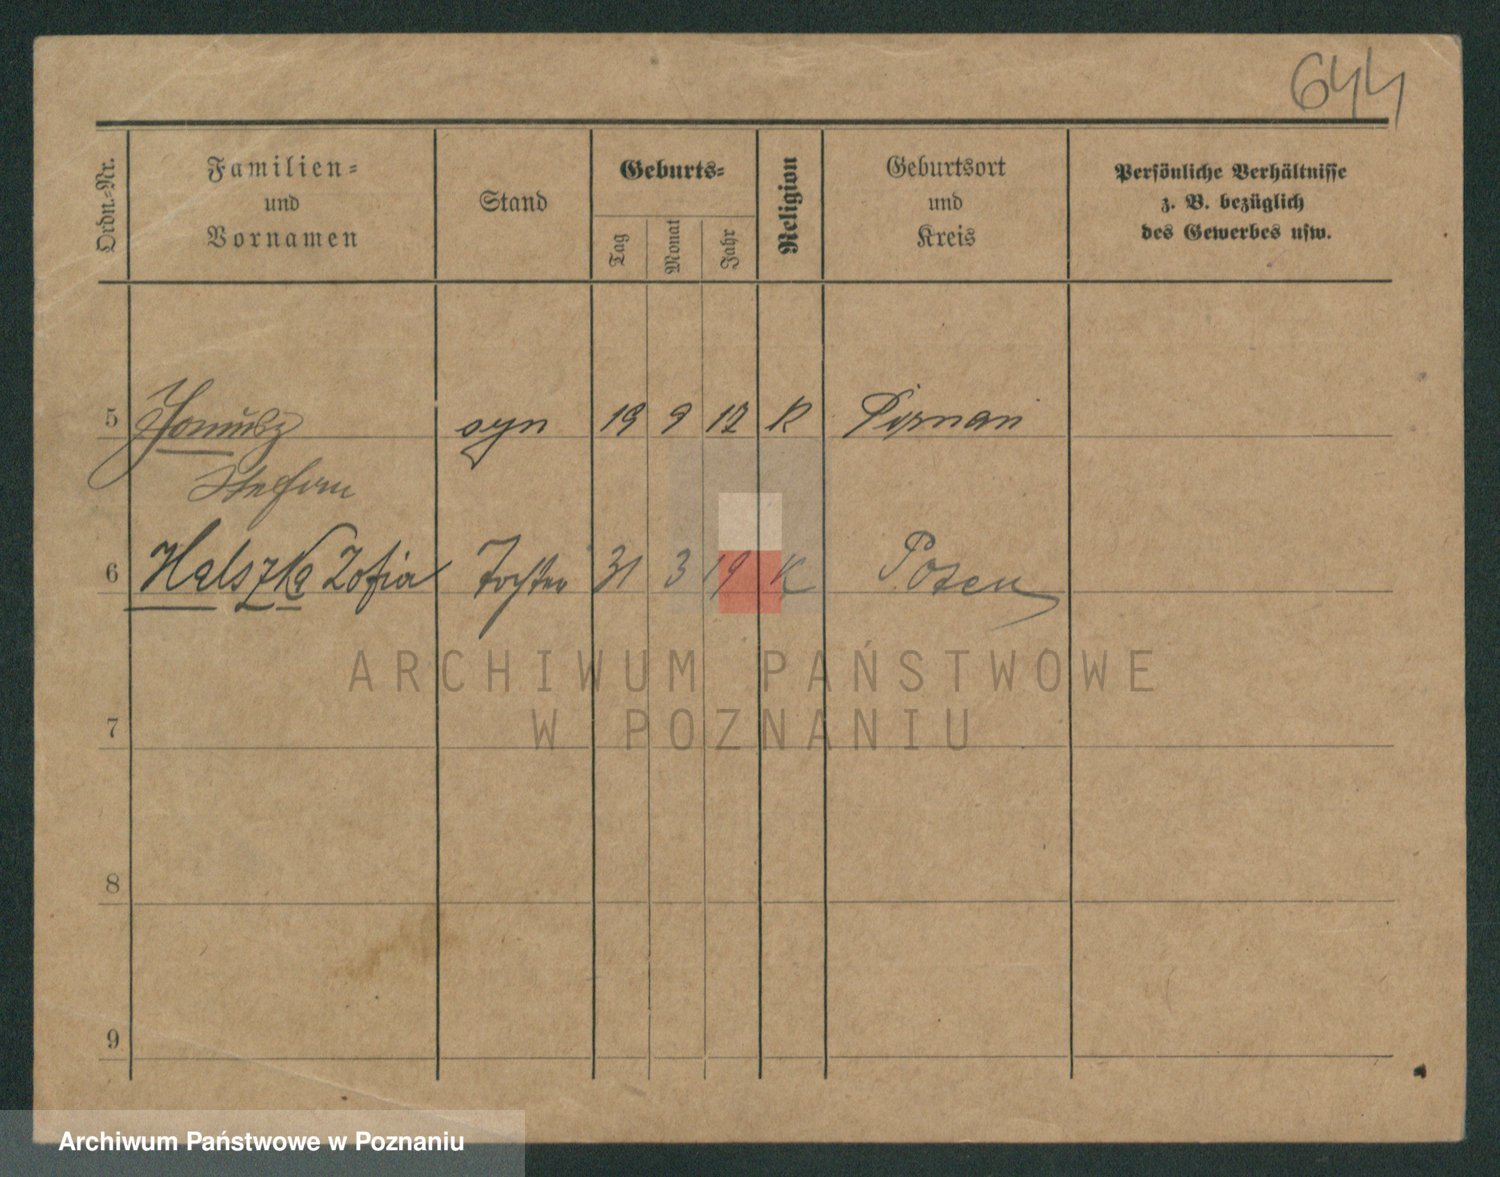 644
Ordn.-Nr.
Familien-
und
Vornamen
Stand
Geburts-
Tag
Monat
Jahr
Religion
Geburtsort
und
Kreis
Persönliche Verhältnisse
z. B. bezüglich
des Gewerbes usw.
5 Janusz syn 19 9 12 K Poznan
Stefan
6 Halszka Zofia Tochter 31 3 19 K Posen
ARCHIWUM PAŃSTWOWE
W POZNANIU
7
8
9
Archiwum Państwowe w Poznaniu